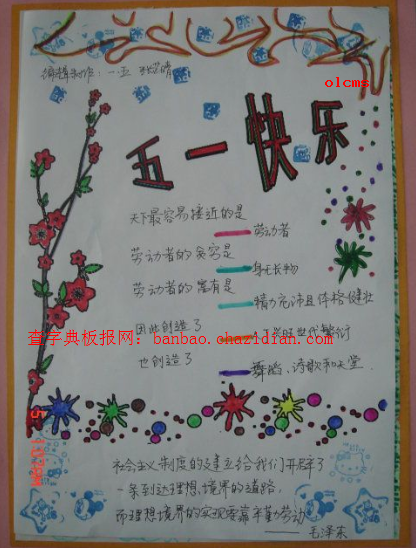 olcms
编辑制作：一五
五一快乐
天下最容易接近的是
劳动者
劳动者的贫穷是
身无长物
劳动者的富有是
精力充沛且体格健壮
因此创造了
世代繁衍
查字典板报网：banbao.chazidian.com
也创造了
舞蹈、诗歌和天堂.
社会主义制度的建立给我们开辟了
一条到达理想境界的道路，
而理想境界的实现要靠辛勤劳动
——毛泽东